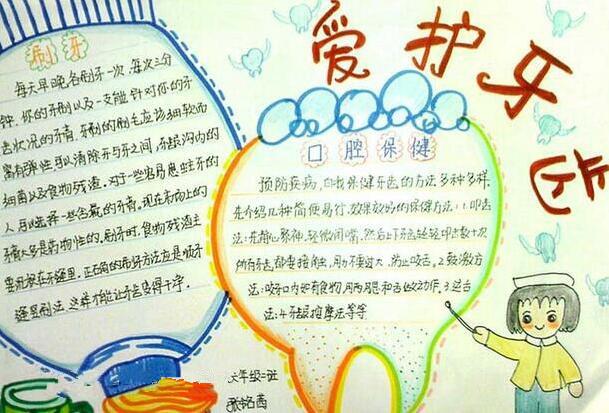 爱护牙齿
刷牙
每天早晚各刷牙一次,每次三分
钟。你的牙刷以及一支能针对你的牙
齿状况的牙膏。牙刷的刷毛应该细软而
富有弹性可以清除牙与牙之间、牙龈沟内的
细菌以及食物残渣。对于一些容易患蛀牙的
人可以选择一些含氟的牙膏。现在市场上的
牙膏大多是药物性的。刷牙时,食物残渣主
要就积在牙缝里。正确的刷牙方法应是顺牙
缝里刷法。这样才能让牙齿变得干净。
口腔保健
预防疾病,自我保健牙齿的方法多种多样,
先介绍几种简便易行、效果较好的保健方法:1.叩齿
法:先静心聚神,轻微闭嘴,然后上下牙齿轻轻叩击数十次
所有牙齿都要接触,用力不要过大,防止咬舌。2.鼓漱方
法:咬牙口内如有食物,用两腮和舌做动作。3.运舌
法:4.牙龈按摩法等等
六年级一班
张铭茜